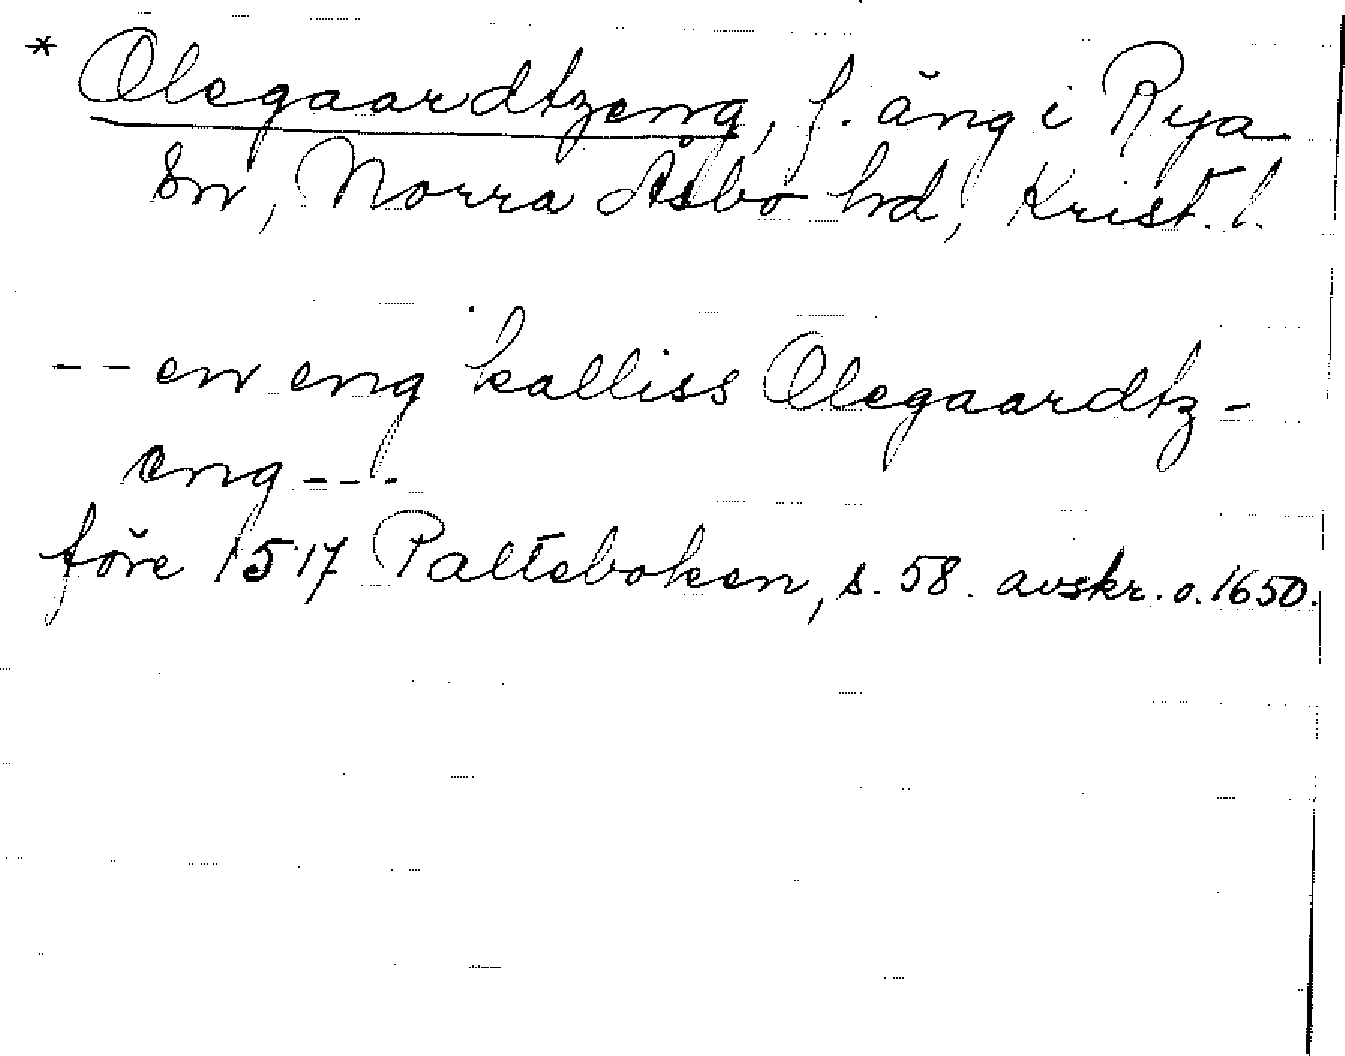 * Olegaardtzeng, f. äng i Rya
sn, Norra Åsbo hd, Krist. l.
-- en eng kalliss Olegaardtz-
eng ---
före 1517 Palteboken, s. 58. avskr. o. 1650.